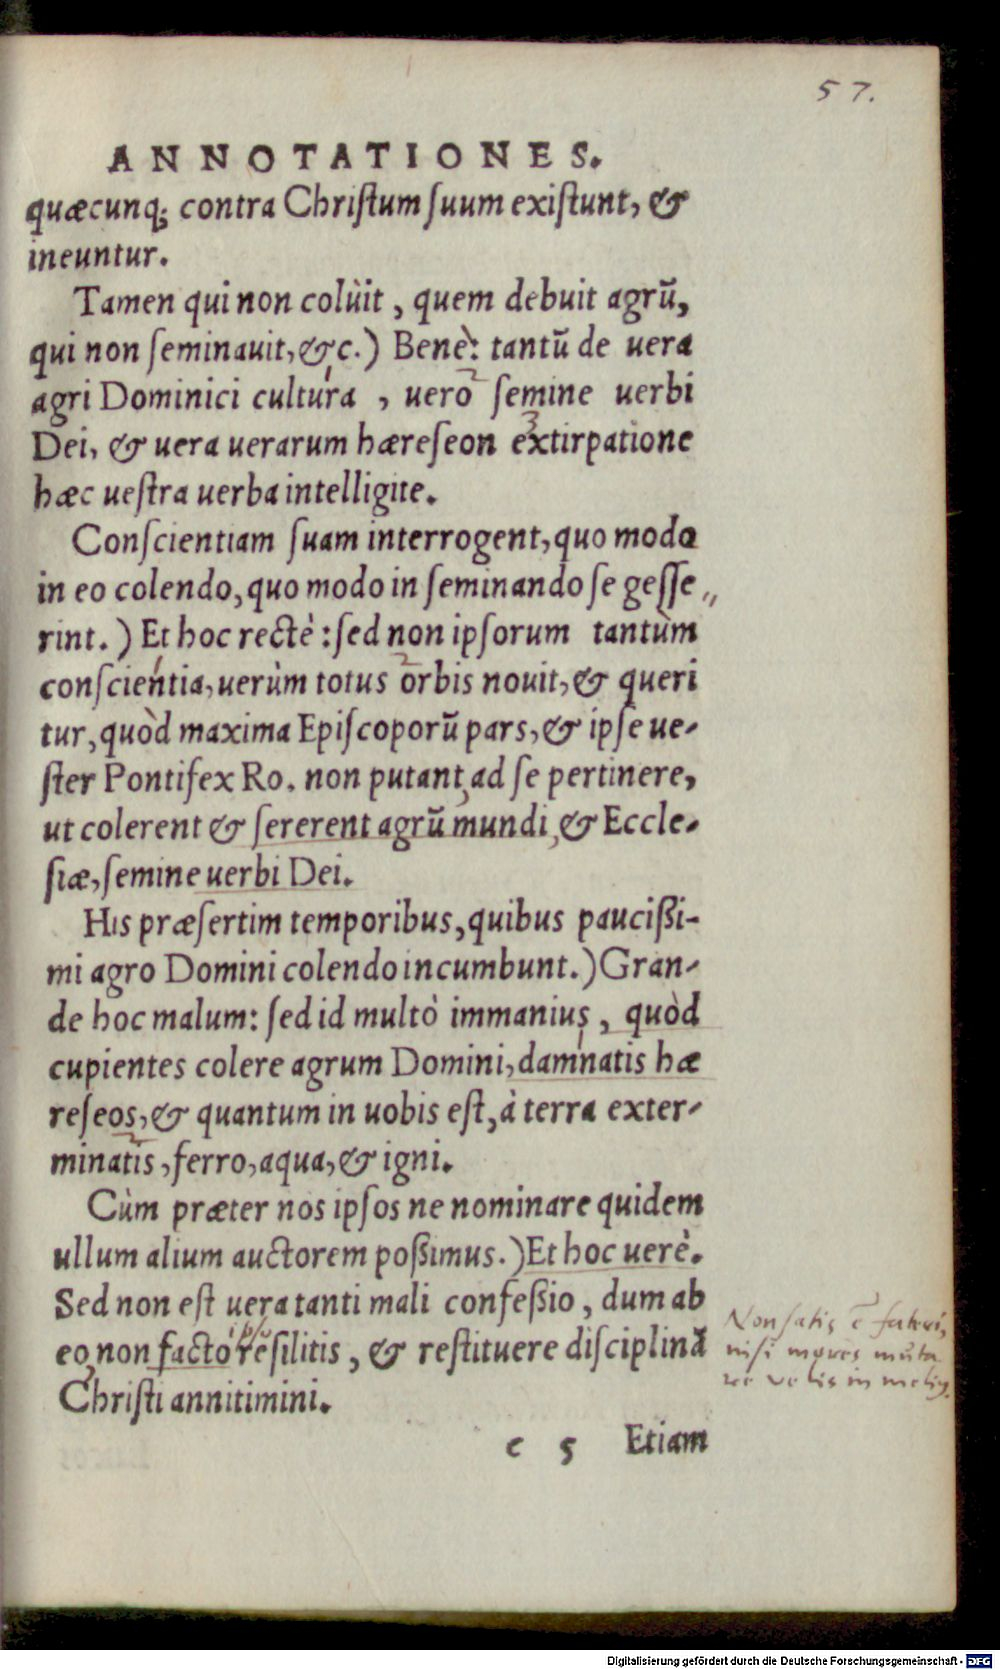 57.
ANNOTATIONES.
quæcunq; contra Chriſtum ſuum exiſtunt, &
ineuntur.
Tamen qui non colùit, quem debuit agrū,
qui non ſeminauit, &c.) Benè: tantū de uera
agri Dominici cultura, uero ſemine uerbi
Dei, & uera uerarum hæreſeon extirpatione
hæc ueſtra uerba intelligite.
Conſcientiam ſuam interrogent, quo modo
in eo colendo, quo modo in ſeminando ſe geſſe„
rint.) Et hoc rectè: ſed non ipſorum tantùm
conſcientia, uerùm totus orbis nouit, & queri
tur, quòd maxima Epiſcoporū pars, & ipſe ue-
ſter Pontifex Ro. non putant ad ſe pertinere,
ut colerent & ſererent agrū mundi, & Eccle-
ſiæ, ſemine uerbi Dei.
His præſertim temporibus, quibus paucißi-
mi agro Domini colendo incumbunt.) Gran-
de hoc malum: ſed id multò immanius, quòd
cupientes colere agrum Domini, damnatis hæ
reſeos, & quantum in uobis eſt, à terra exter-
minatis, ferro, aqua, & igni.
Cùm præter nos ipſos ne nominare quidem
ullum alium auctorem poßimus.) Et hoc uerè.
Sed non eſt uera tanti mali confeßio, dum ab
eo, non facto reſilitis, & reſtituere diſciplinā
ipso
Chriſti annitimini.
Non satis ē fateri,
nisi mores muta
re velis in meliꝰ.
c 5 Etiam
Digitalisierung gefördert durch die Deutsche Forschungsgemeinschaft - DFG